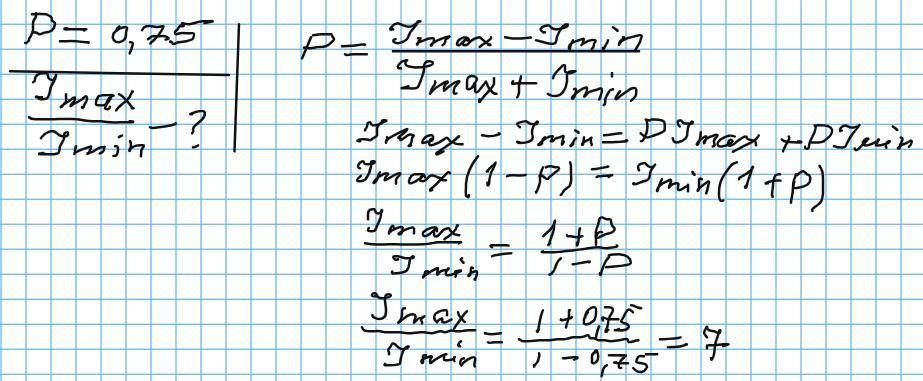 P = 0,75
Jmax/Jmin - ?
P = (Jmax - Jmin)/(Jmax + Jmin)
Jmax - Jmin = PJmax + PJmin
Jmax(1 - P) = Jmin(1 + P)
Jmax/Jmin = (1 + P)/(1 - P)
Jmax/Jmin = (1 + 0,75)/(1 - 0,75) = 7